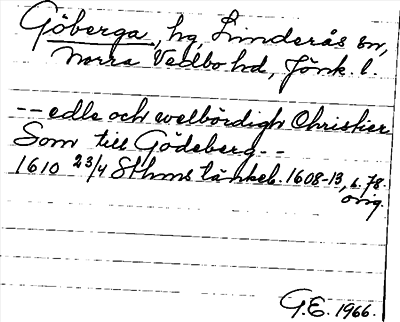 Göberga, hg, Linderås sn,
Norra Vedbo hd, Jönk. l.
-- edle och welbördigh Christier
Som till Gödeberg --
1610 23/4 Sthms tänkeb. 1608-13, s. 78.
orig.
G.E. 1966.